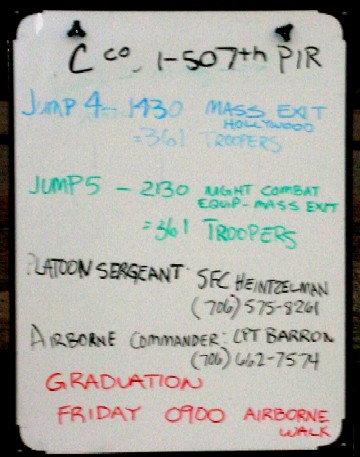 C co. 1-507th PIR
JUMP 4 - 1430 MASS EXIT
HOLLYWOOD
=361 TROOPERS
JUMP 5 - 2130 NIGHT COMBAT
EQUIP - MASS EXIT
=361 TROOPERS
PLATOON SERGEANT: SFC HEINTZELMAN
(706) 575-8261
AIRBORNE COMMANDER: CPT BARRON
(706) 662-7574
GRADUATION
FRIDAY 0900 AIRBORNE
WALK